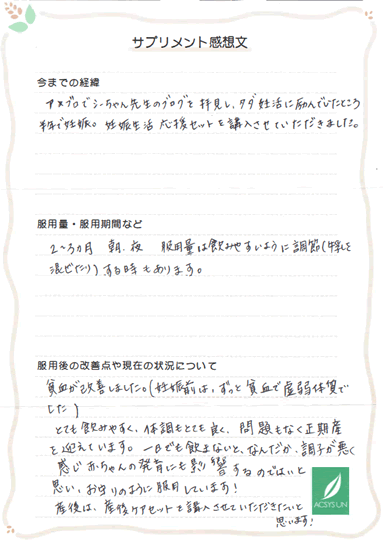 サプリメント感想文
今までの経緯
アメブロでシーちゃん先生のブログを拝見し、タダ妊活に励んでいたところ
半年で妊娠。妊娠生活応援セットを購入させていただきました。
服用量・服用期間など
2〜3ヵ月 朝、夜 服用量は飲みやすいように調節(牛乳を
混ぜたり)する時もあります。
服用後の改善点や現在の状況について
貧血が改善しました。(妊娠前は、ずっと貧血で虚弱体質で
した)
とても飲みやすく、体調もとても良く、問題もなく正期産
を迎えています。一日でも飲まないと、なんだか、調子が悪く
感じ赤ちゃんの発育にも影響するのではないと
思い、お守りのように服用しています!
産後は、産後ケアセットを購入させていただきたいと
思います!
ACSYS UN